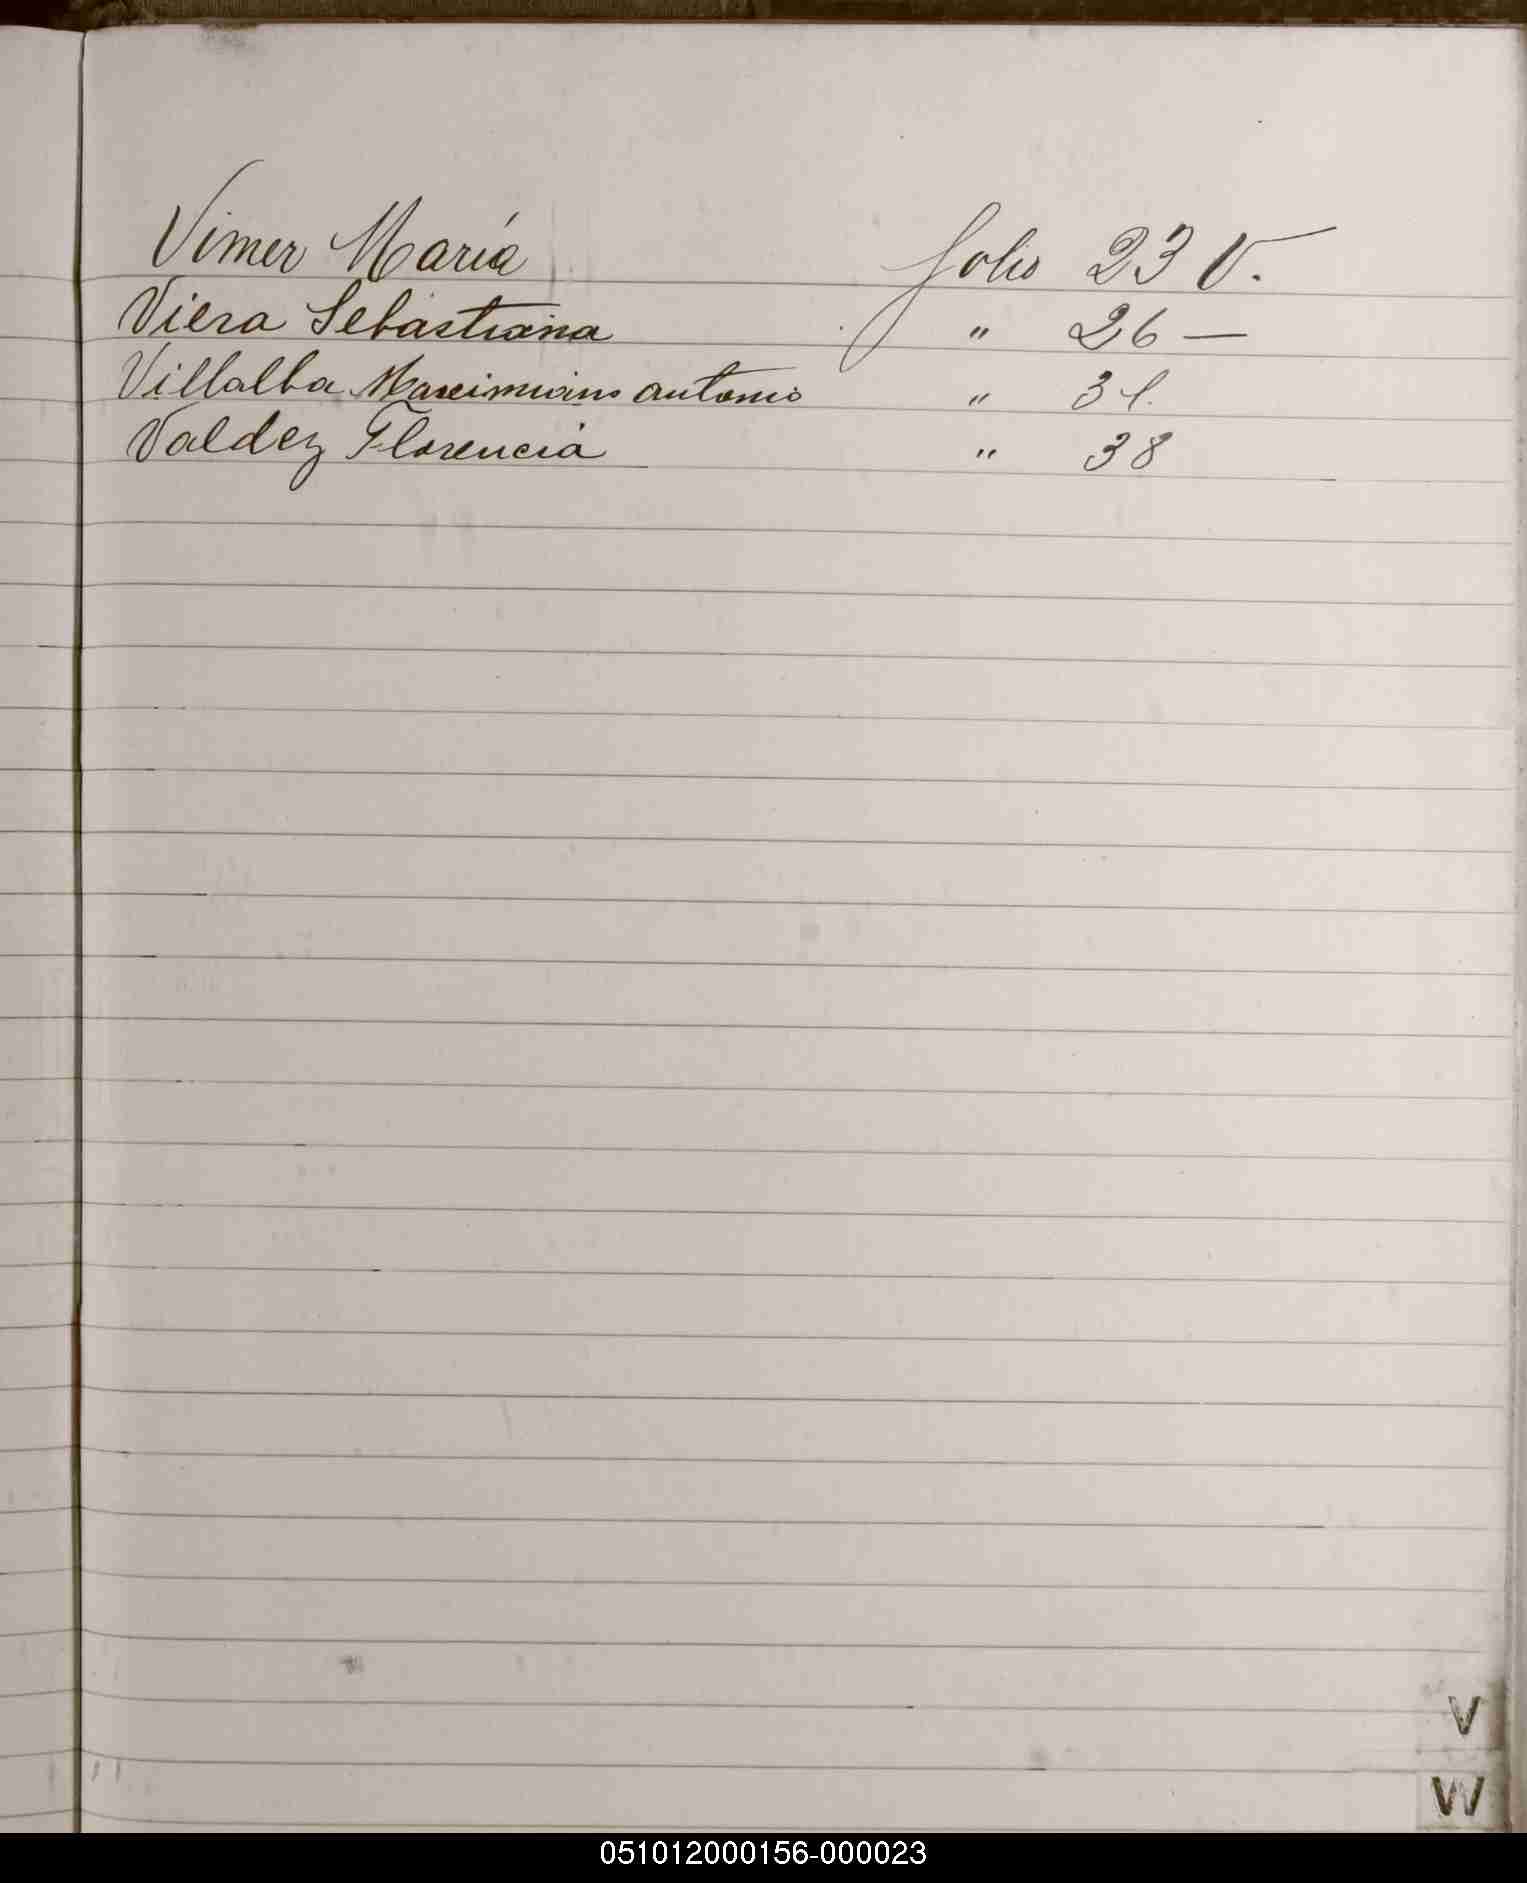 Vimer María folio 23 V.
Viera Sebastiana " 26 —
Villalba Maximiano Antonio " 31.
Valdez Florencia " 38
V
W
051012000156-000023